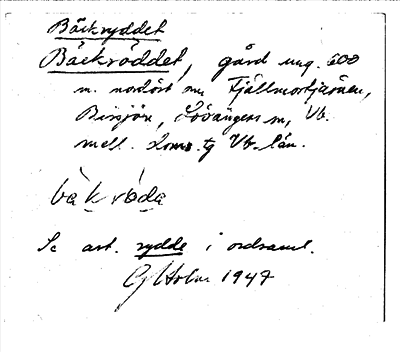 Bäckryddet
Bäckröddet, gård ung. 600
m. nordöst om Fjällmortjärnen,
Bissjön, Lövångers sn, Vb.
mell. doms. tg Vb. län.
bàkrö̀da
Se art. rydde i ordsaml.
G Holm 1947